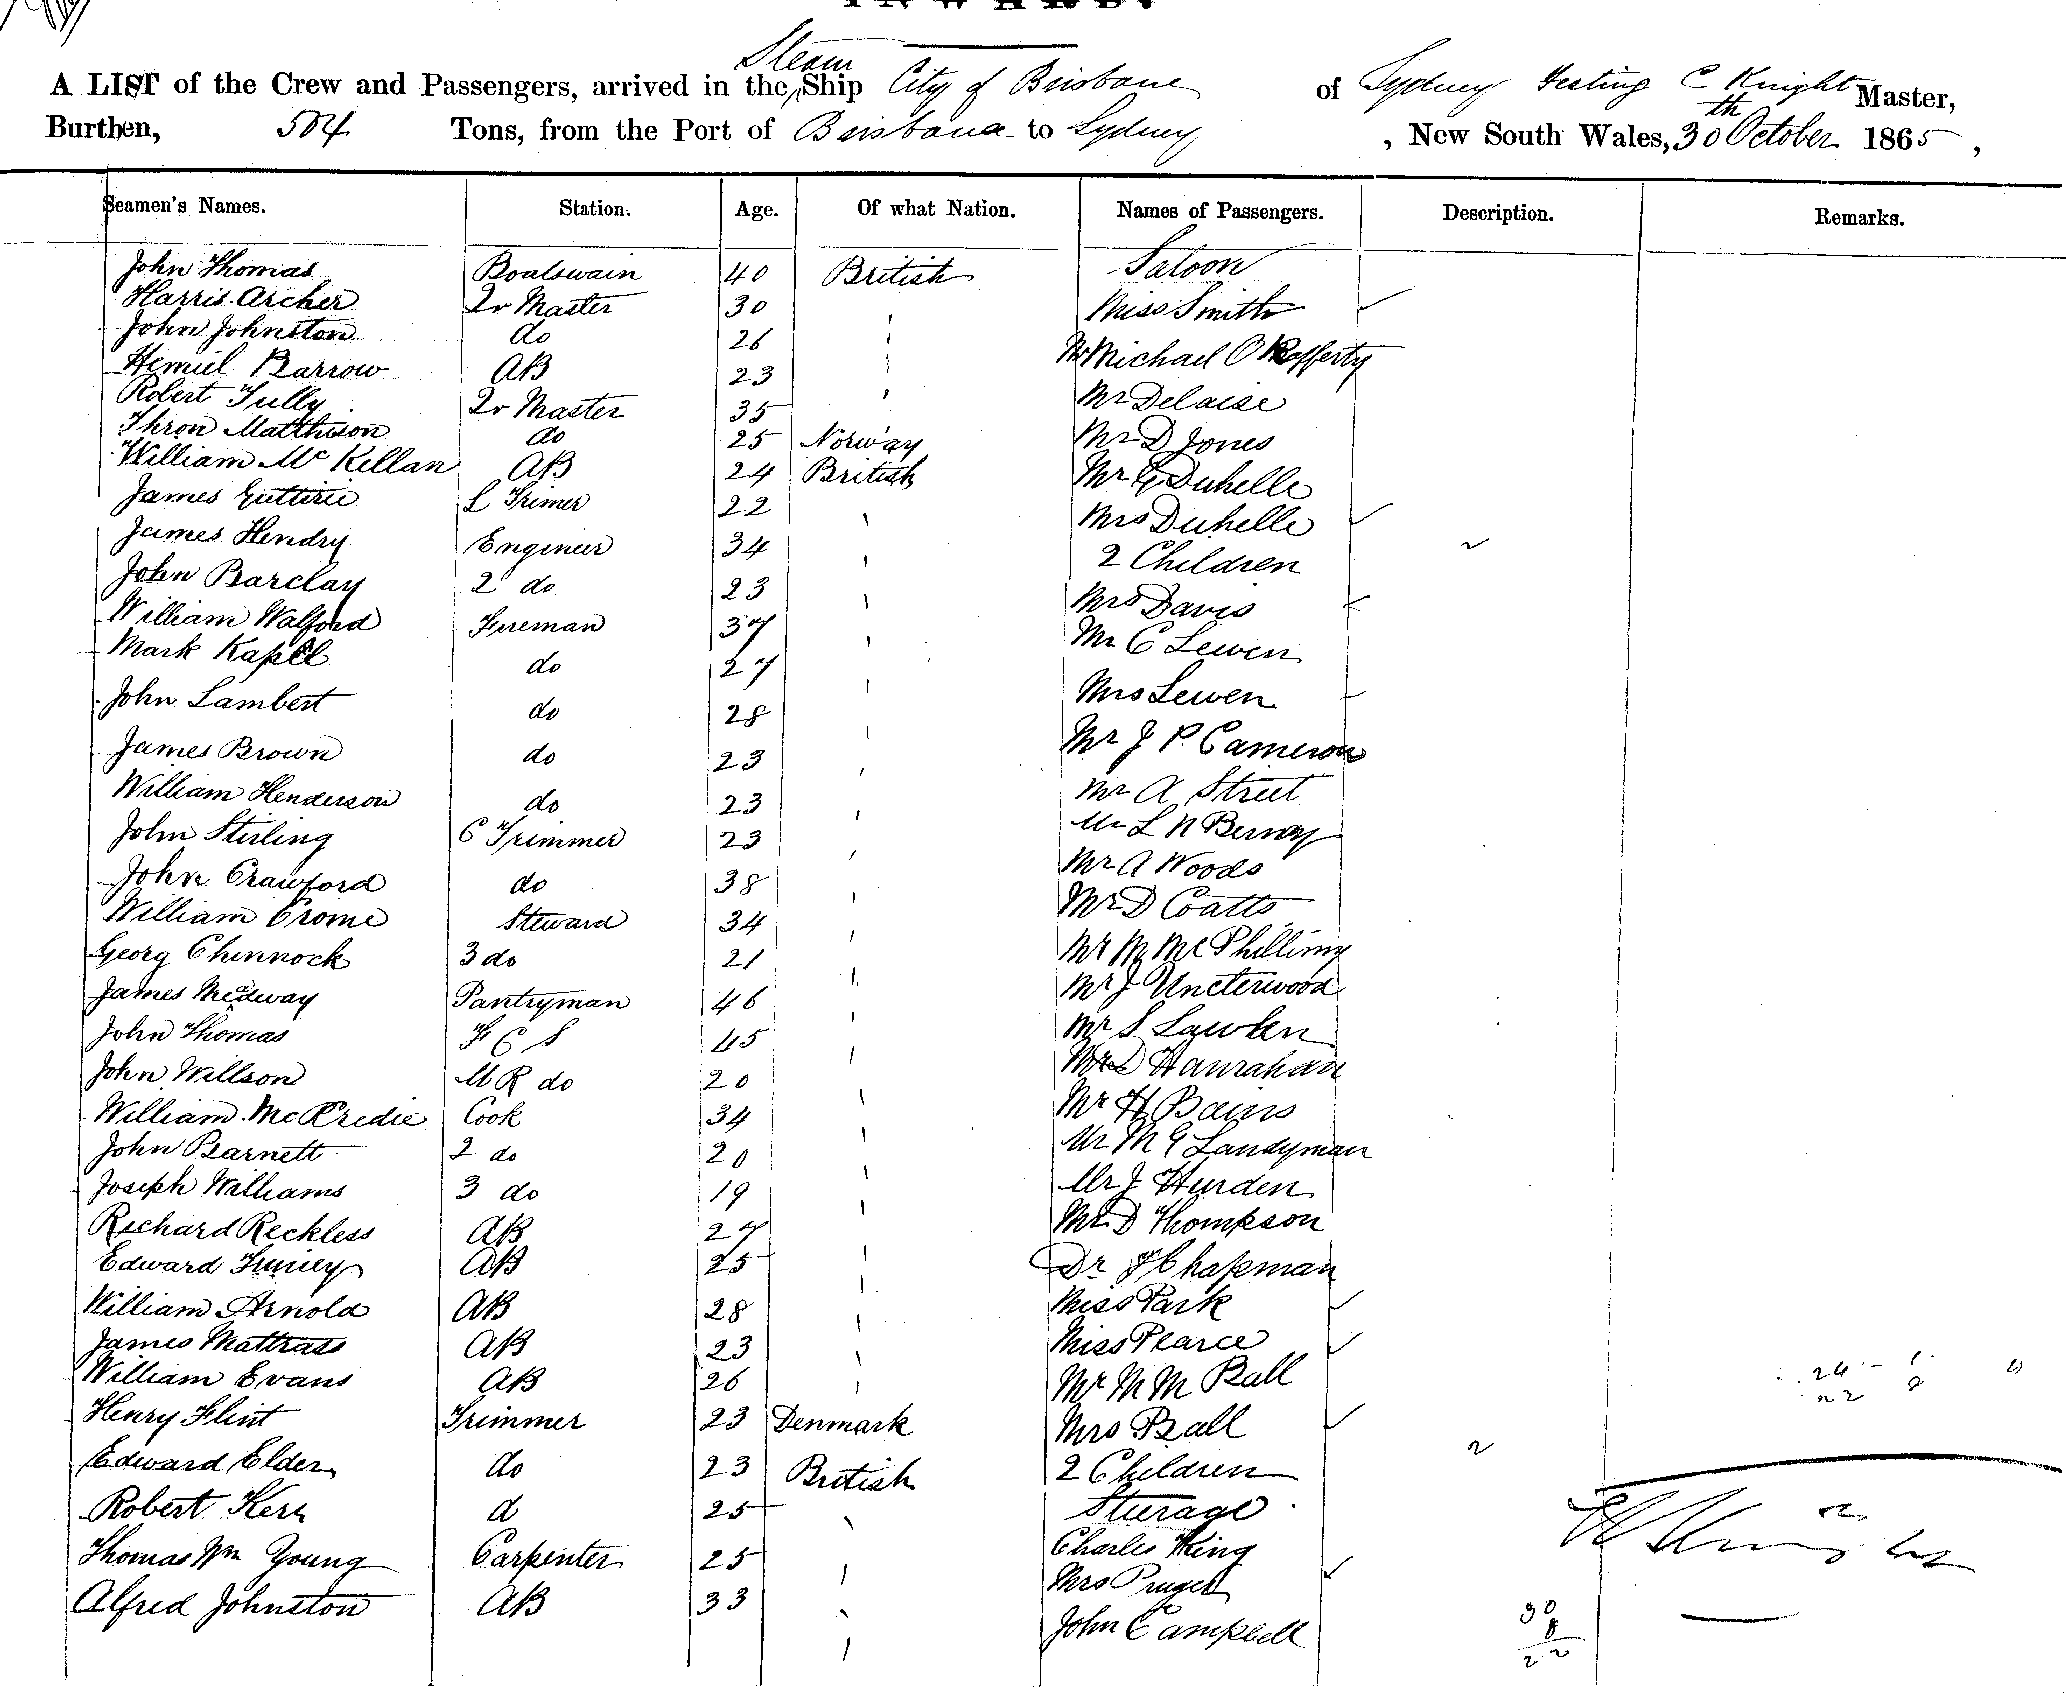 INWARD.
A LIST of the Crew and Passengers, arrived in the Steam Ship City of Brisbane of Sydney C Knight Master,
Burthen, 504 Tons, from the Port of Brisbane to Sydney, New South Wales, 30th October 1865,
Seamen's Names. Station. Age. Of what Nation. Names of Passengers. Description. Remarks.
John Thomas Boatswain 40 British Saloon
Harris Archer Qr Master 30 Miss Smith
John Johnston do 26 Mr Michael O Rafferty
Barrow AB 23 Mr Delaise
Robert Tully Qr Master 35 Mr D Jones
Thron Matthison do 25 Norway Mr G Duhelle
William Mc Kellan AB 24 British Mrs Duhelle
James Guttrie L Trimer 22 2 Children
James Hendry Engineer 34 Mrs Davis
John Barclay 2 do 23 Mr C Lewen
William Walford Fireman 37 Mrs Lewen
Mark Kapell do 27 Mr J P Cameron
John Lambert do 28 Mr A Street
James Brown do 23 Mr L N
William Henderson do 23 Mr A Woods
John Stirling C Trimmer 23 Mr D Coatts
John Crawford do 38 Mr M Mc Phillimy
William Crome Steward 34 Mr J Uncterwood
Georg Chinnock 3 do 21 Mr S Lawlen
James Medway Pantryman 46 Hanrahan
John Thomas F C S 45 Mr H Bains
John Willson M R do 20 Mr M G Landyman
William McCredie Cook 34 Mr J Hurden
John Barnett 2 do 20 Mr D Thompson
Joseph Williams 3 do 19 Dr Chapman
Richard Reckless AB 27 Miss Park
Edward AB 25 Miss Pearce
William Arnold AB 28 Mr M M Ball
James Mattrass AB 23 Mrs Ball
William Evans AB 26 2 Children
Henry Flint Trimmer 23 Denmark Steerage
Edward Elder do 23 British Charles King
Robert Kerr d 25 Mrs
Thomas Wm Young Carpenter 25 John Campbell
Alfred Johnston AB 33
30
8
22